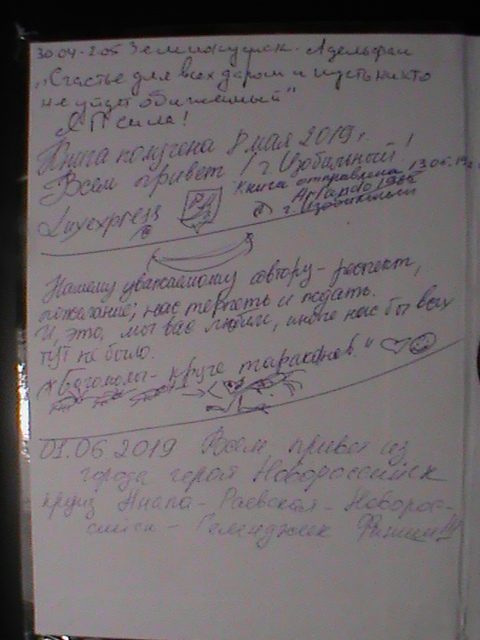 30.04-2.05 Адельфан
„Счастье для всех даром и пусть никто
не уйдет обиженный"
АП сила!
Книга получена 8 мая 2019г.
Всем привет! г. Изобильный!
Книга отправлена 13.05.19г.
Luxexpress
Arlando1986
г. Изобильный
Нашему уважаемому автору - респект,
пожелание; нас терпеть и ждать.
И, это, мы вас любим, иначе нас бы всех
тут не было.
"Богомолы - круче тараканов"
01.06.2019 Всем привет из
города героя Новороссийск
круиз Анапа - Раевская - Новорос-
сийск - Геленджик